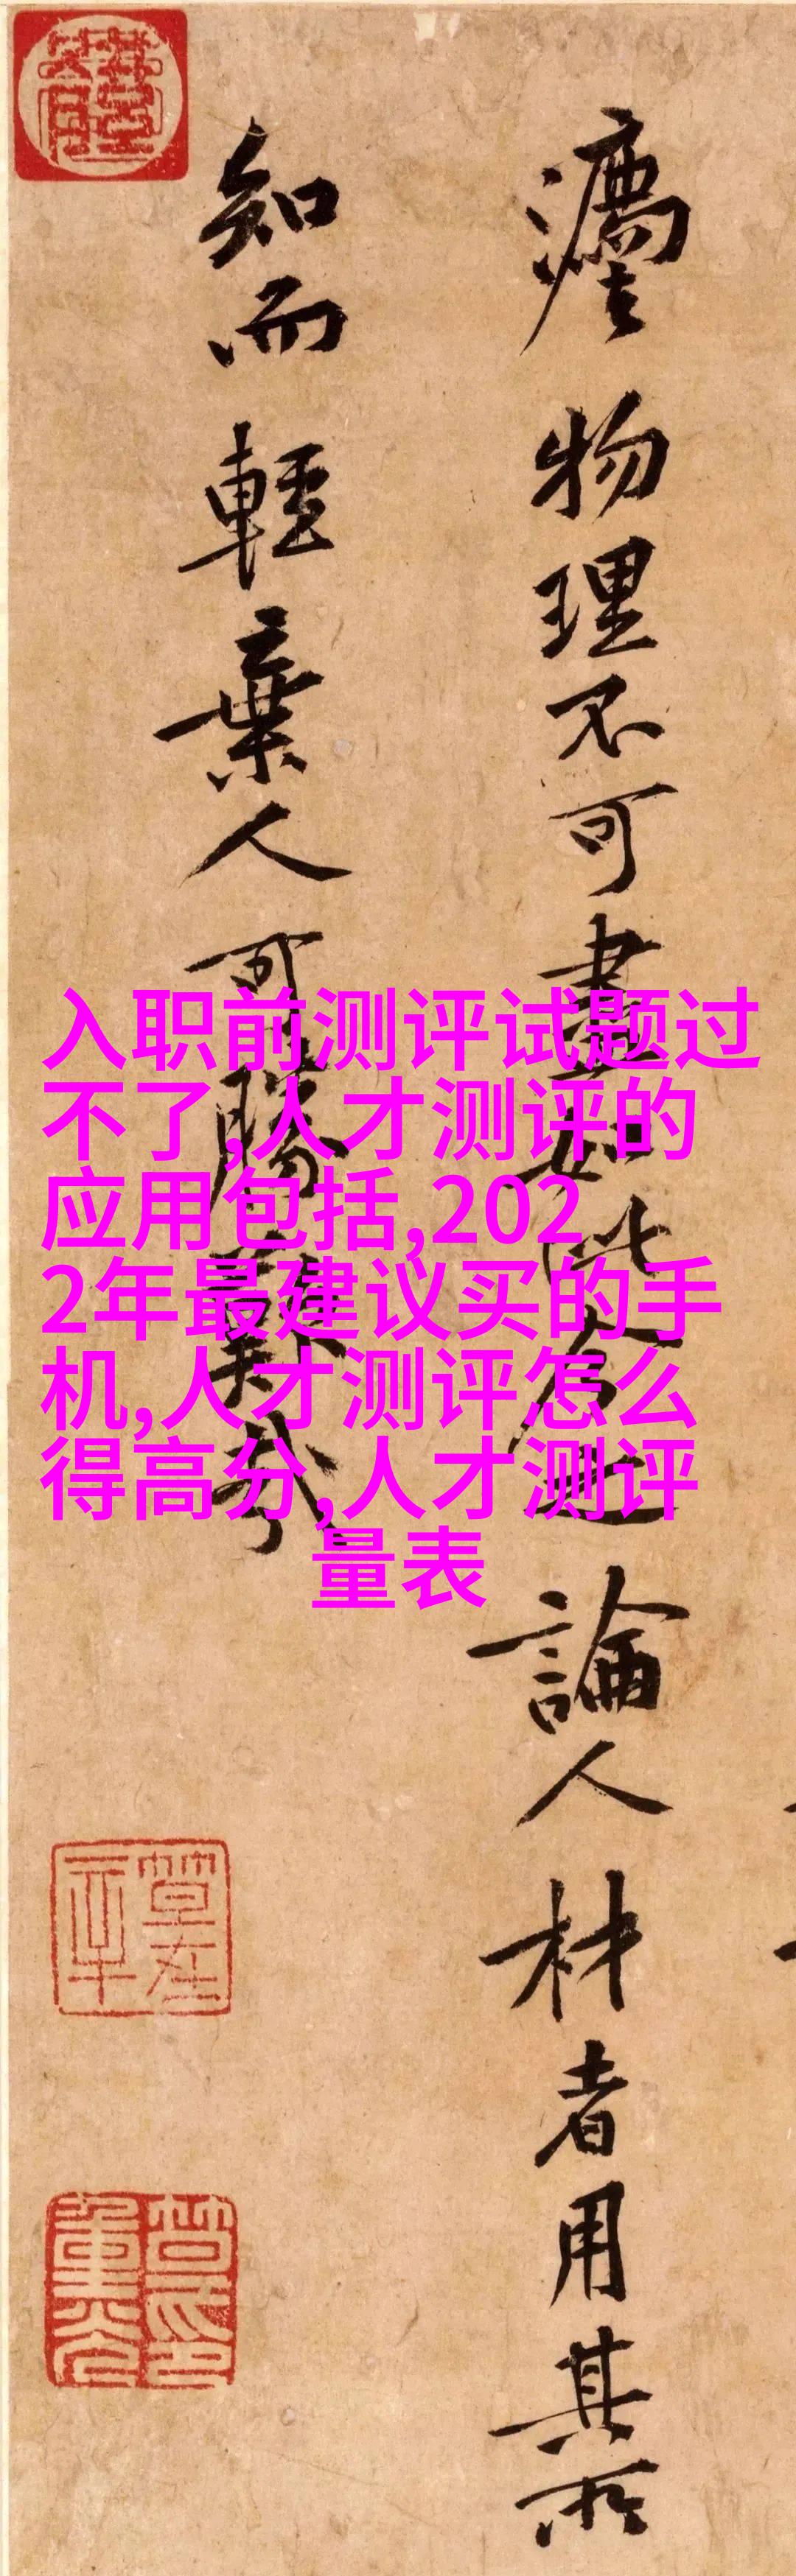 物理不可盡如此論人材者用其所
知而輕棄人可勝歎哉
入职前测评试题过
不了,人才测评的
应用包括,202
2年最建议买的手
机,人才测评怎么
得高分,人才测评
量表